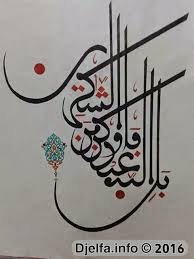 بل الله فاعبد وكن من الشكرين
Djelfa.info © 2016